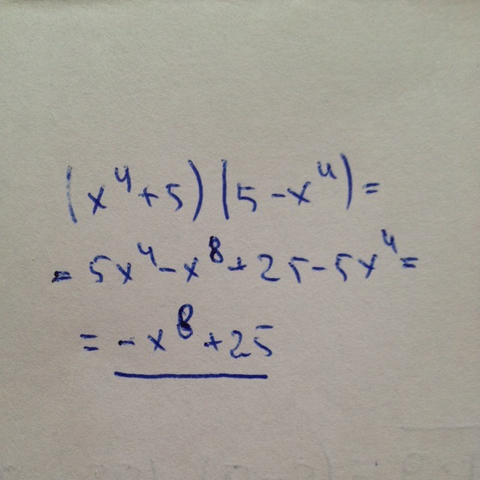 (x⁴+5)(5-x⁴)=
=5x⁴-x⁸+25-5x⁴=
=-x⁸+25